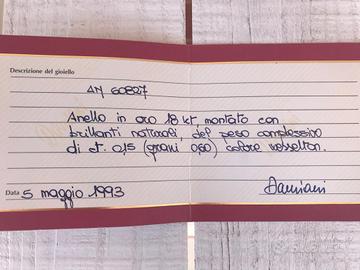 Descrizione del gioiello
AN 60827
Anello in oro 18 kt, montato con
brillanti naturali, del peso complessivo
di ct. 0,15 (grani 0,60) colore wesselton.
Data 5 maggio 1993
Damiani